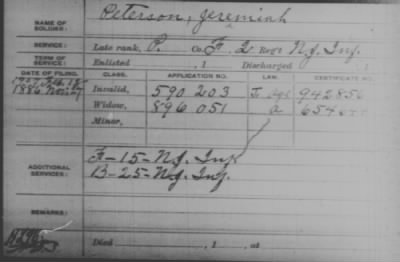 NAME OF SOLDIER: Peterson, Jeremiah
SERVICE: Late rank, P. Co. F, 2 Reg't N.J. Inf.
TERM OF SERVICE: Enlisted , 1 Discharged , 1
DATE OF FILING. CLASS. APPLICATION NO. LAW. CERTIFICATE NO.
1886 Invalid, 590 203 942856
Widow, 896 051 654
Minor,
ADDITIONAL SERVICES: F-15-N.J. Inf.
B-25-N.J. Inf.
REMARKS:
Died , 1 , at